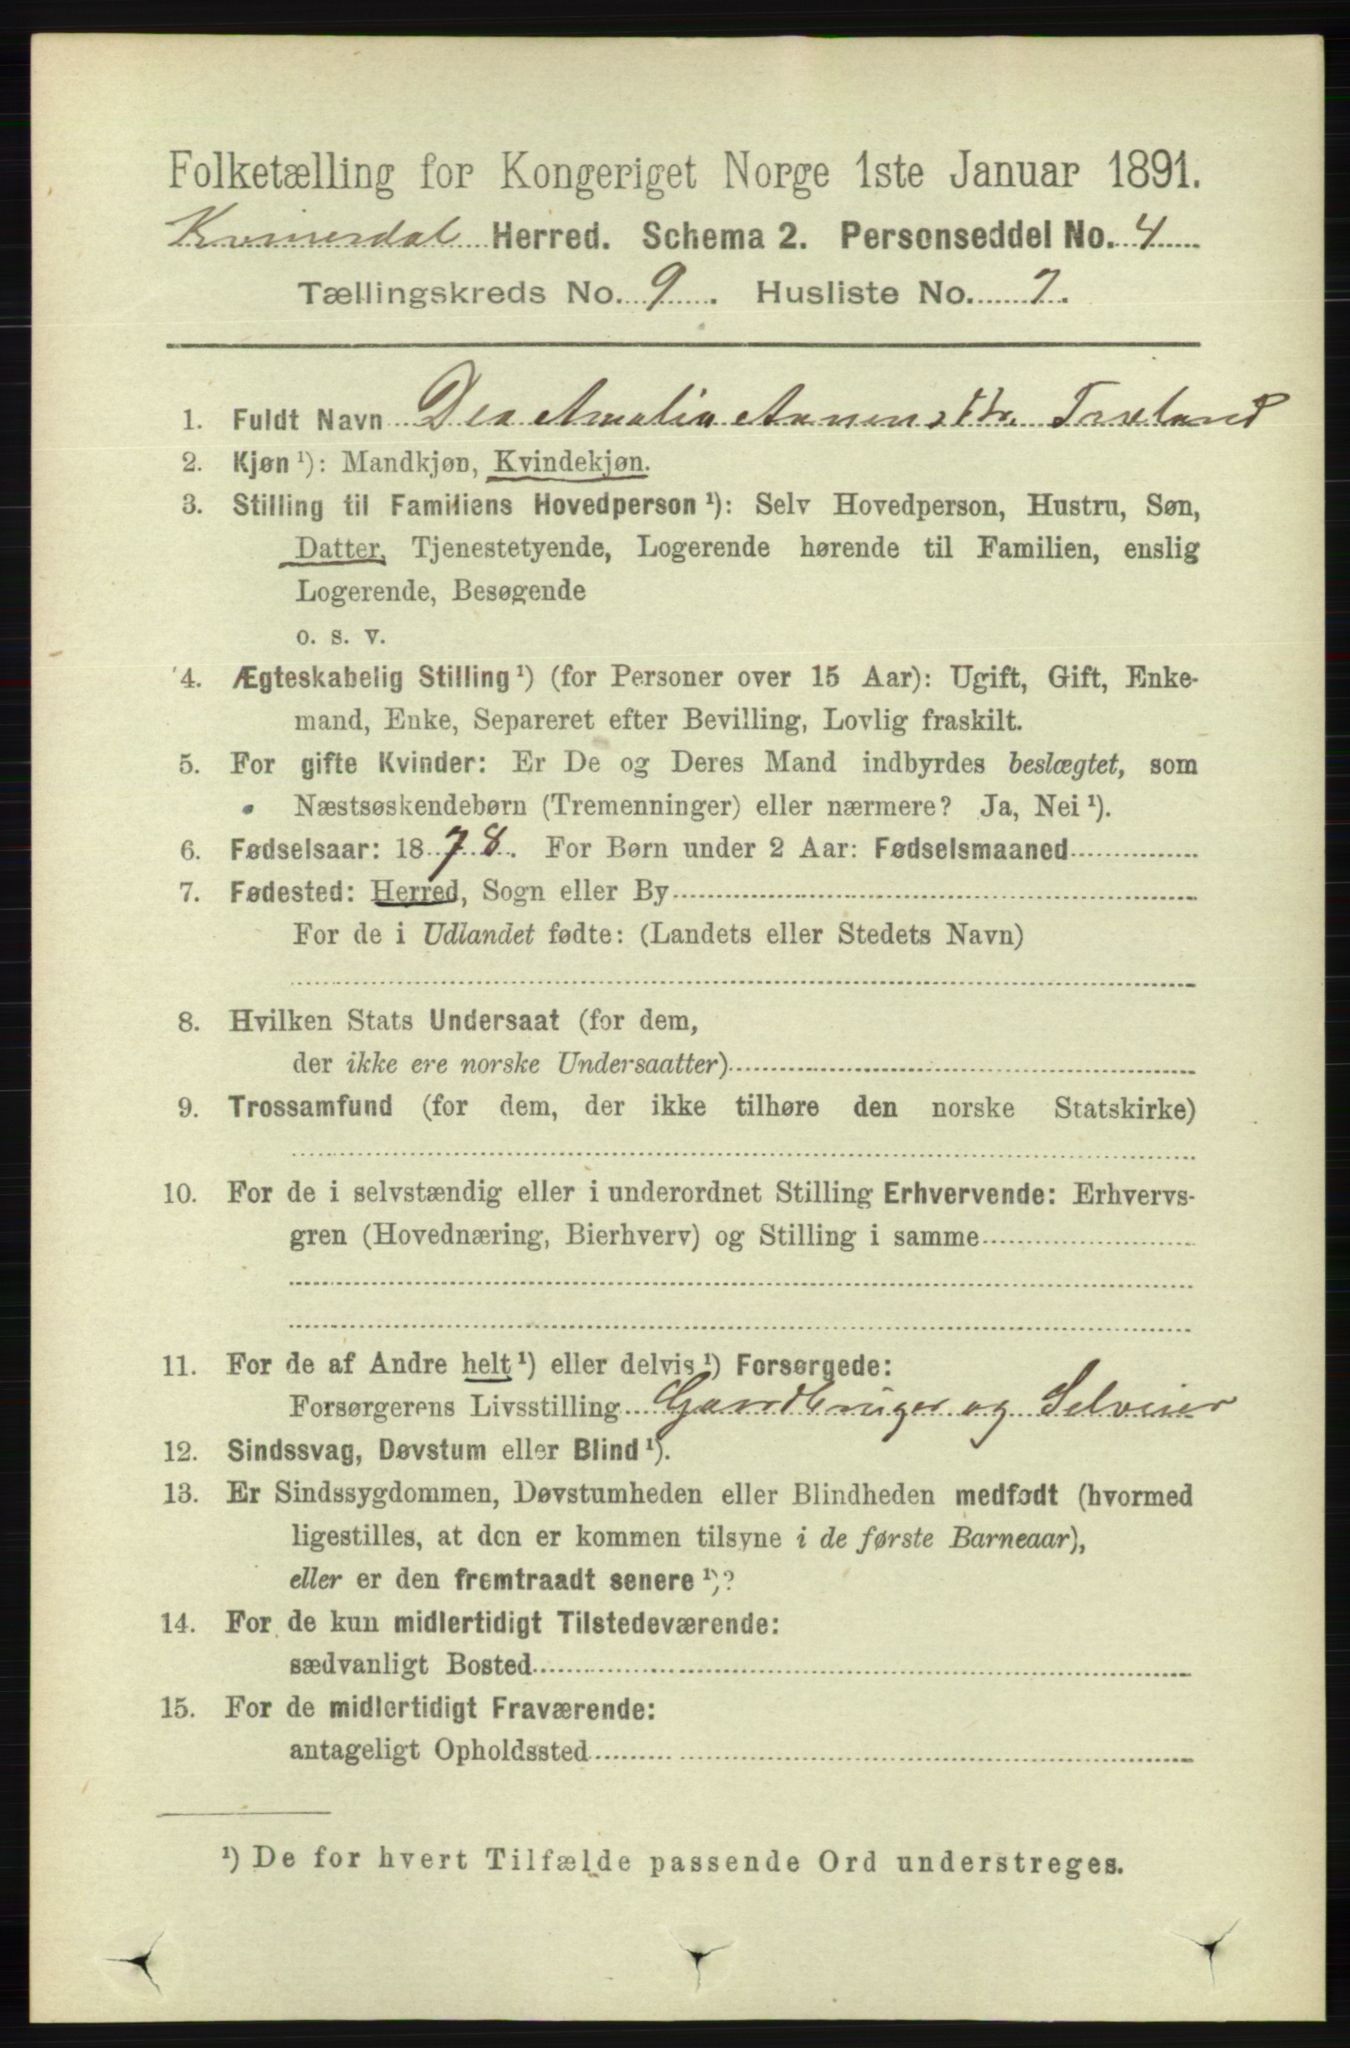 Folketælling for Kongeriget Norge 1ste Januar 1891.
Kvinesdal Herred. Schema 2. Personseddel No. 4
Tællingskreds No. 9. Husliste No. 7.
1. Fuldt Navn Dea Amalia Træland
2. Kjøn ¹): Mandkjøn, Kvindekjøn.
3. Stilling til Familiens Hovedperson ¹): Selv Hovedperson, Hustru, Søn,
Datter, Tjenestetyende, Logerende hørende til Familien, enslig
Logerende, Besøgende
o. s. v.
4. Ægteskabelig Stilling ¹) (for Personer over 15 Aar): Ugift, Gift, Enke-
mand, Enke, Separeret efter Bevilling, Lovlig fraskilt.
5. For gifte Kvinder: Er De og Deres Mand indbyrdes beslægtet, som
Næstsøskendebørn (Tremenninger) eller nærmere? Ja, Nei ¹).
6. Fødselsaar: 1878. For Børn under 2 Aar: Fødselsmaaned
7. Fødested: Herred, Sogn eller By
For de i Udlandet fødte: (Landets eller Stedets Navn)
8. Hvilken Stats Undersaat (for dem,
der ikke ere norske Undersaatter)
9. Trossamfund (for dem, der ikke tilhøre den norske Statskirke)
10. For de i selvstændig eller i underordnet Stilling Erhvervende: Erhvervs-
gren (Hovednæring, Bierhverv) og Stilling i samme
11. For de af Andre helt ¹) eller delvis ¹) Forsørgede:
Forsørgerens Livsstilling Gaardbruger og Selveier
12. Sindssvag, Døvstum eller Blind ¹).
13. Er Sindssygdommen, Døvstumheden eller Blindheden medfødt (hvormed
ligestilles, at den er kommen tilsyne i de første Barneaar),
eller er den fremtraadt senere ¹)?
14. For de kun midlertidigt Tilstedeværende:
sædvanligt Bosted
15. For de midlertidigt Fraværende:
antageligt Opholdssted
¹) De for hvert Tilfælde passende Ord understreges.